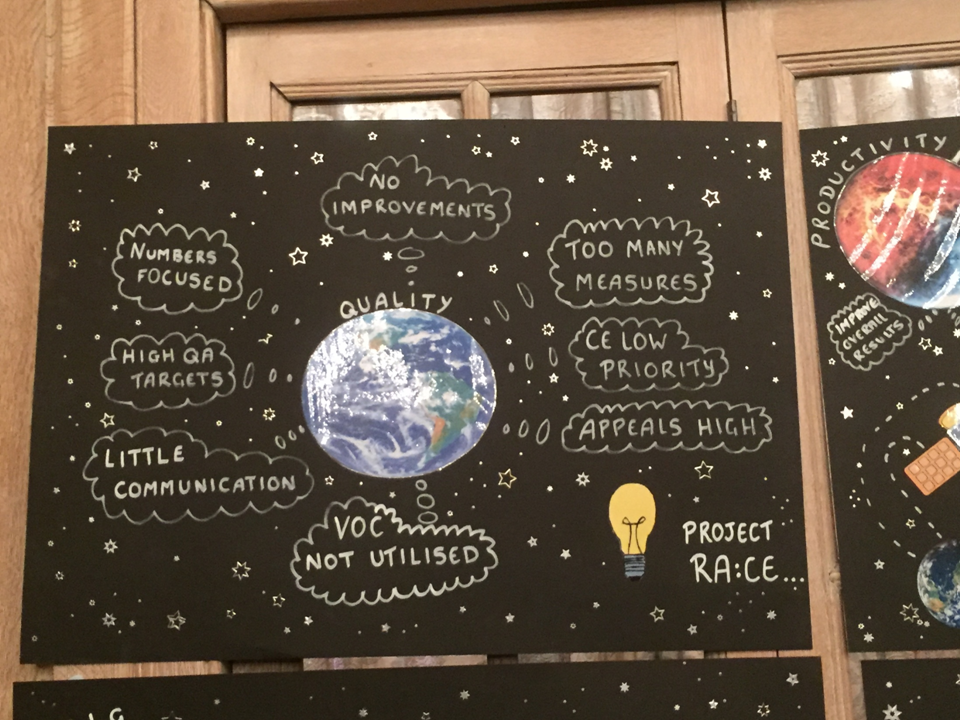 NO
IMPROVEMENTS
NUMBERS
FOCUSED
TOO MANY
MEASURES
QUALITY
HIGH QA
TARGETS
CE LOW
PRIORITY
LITTLE
COMMUNICATION
APPEALS HIGH
VOC
NOT UTILISED
PROJECT
RA:CE...
PRODUCTIVITY
IMPROVE
OVERALL
RESULTS